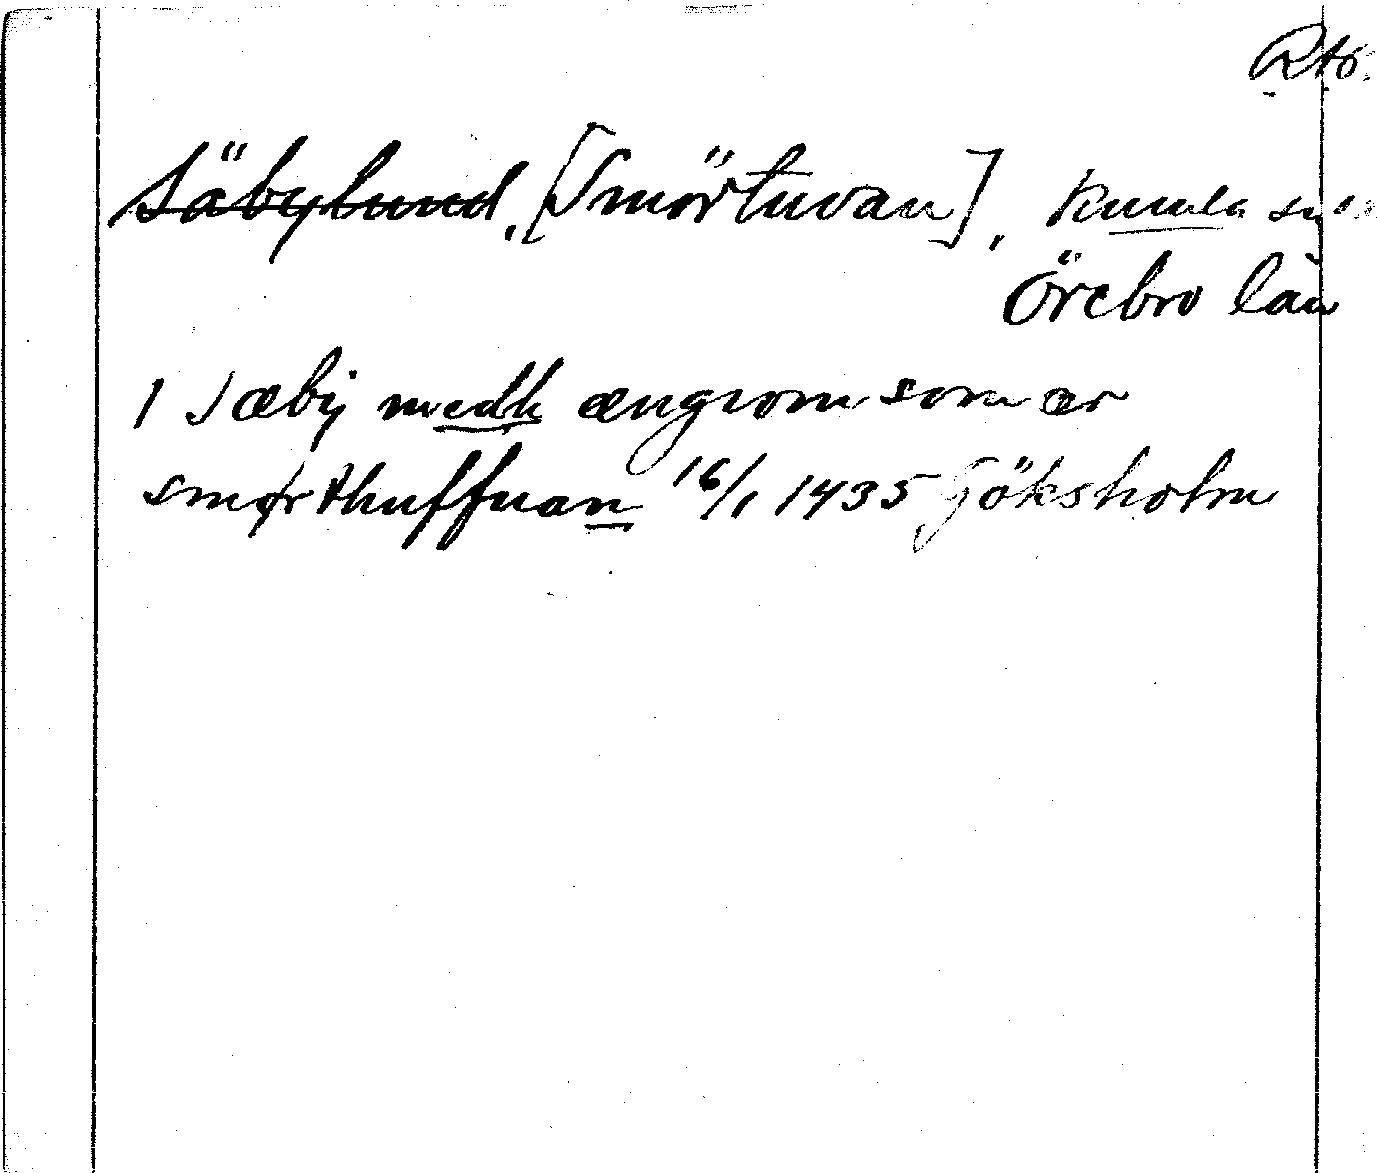 RAÖ.
Säbylund, [Smörtuvan], Kumla sn
Örebro län
1 Sæbÿ medh ængiom som ær
smørthuffuan 16/1 1435 Göksholm